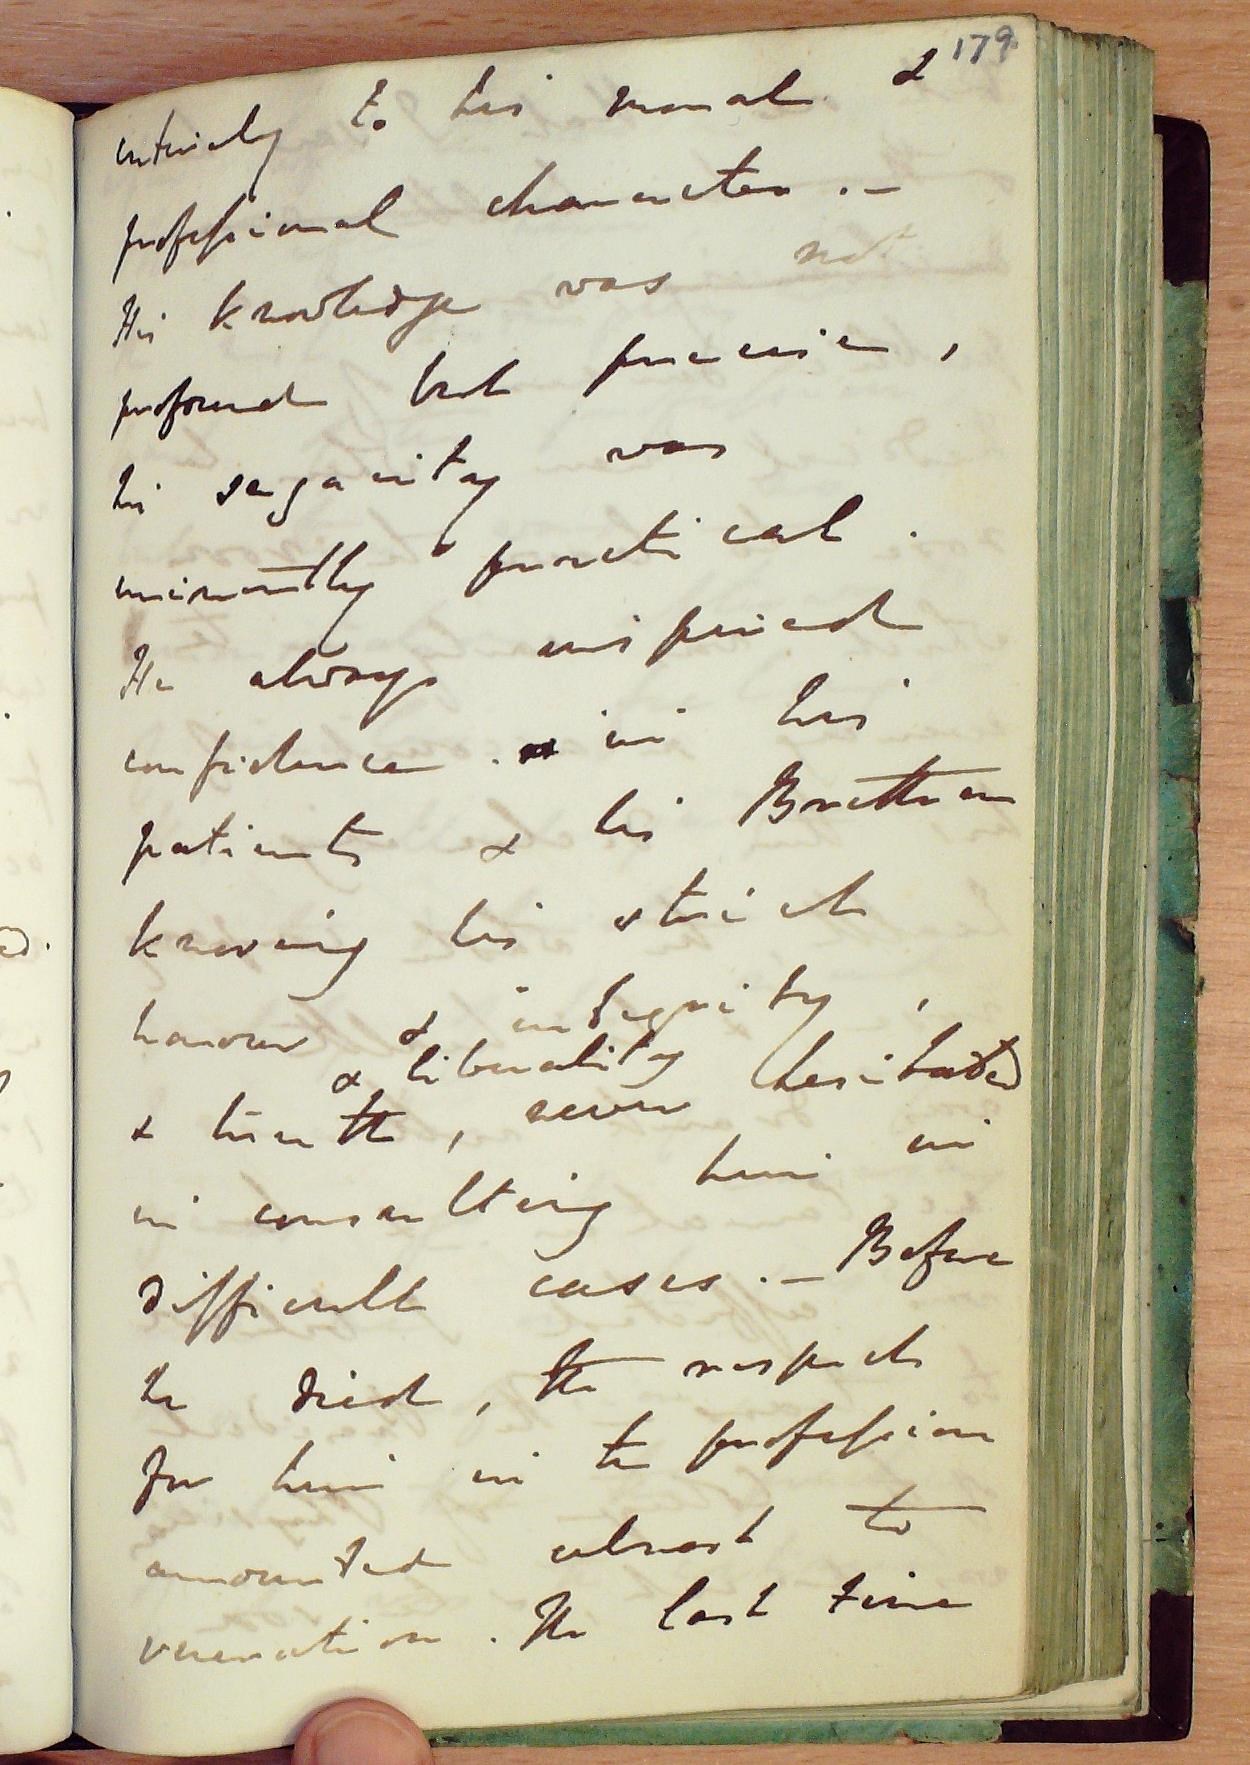 179
entirely to his moral &
professional character. —
His knowledge was not
profound but precise,
his sagacity was
eminently practical.
He always inspired
confidence. in his
patients & his Brethren
knowing his strict
honour & integrity,
& liberality
& truth, never hesitated
in consulting him in
difficult cases. — Before
he died, the respect
for him in the profession
amounted almost to
veneration. The last time